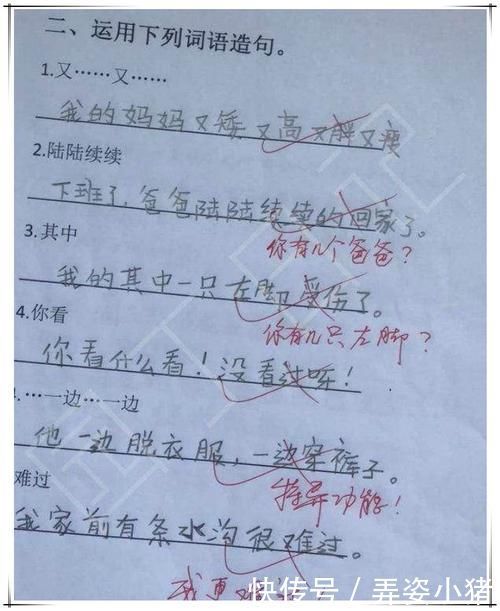 二、运用下列词语造句。
1.又……又……
我的妈妈又矮又高又胖又瘦
2.陆陆续续
下班了,爸爸陆陆续续的回家了。
你有几个爸爸?
3.其中
我的其中一只左脚受伤了。
你有几只左脚?
4.你看
你看什么看!没看过呀!
…一边…一边
他一边脱衣服,一边穿裤子。
特异功能!
难过
我家前有条水沟很难过。
我更
快传号/弄姿小猪